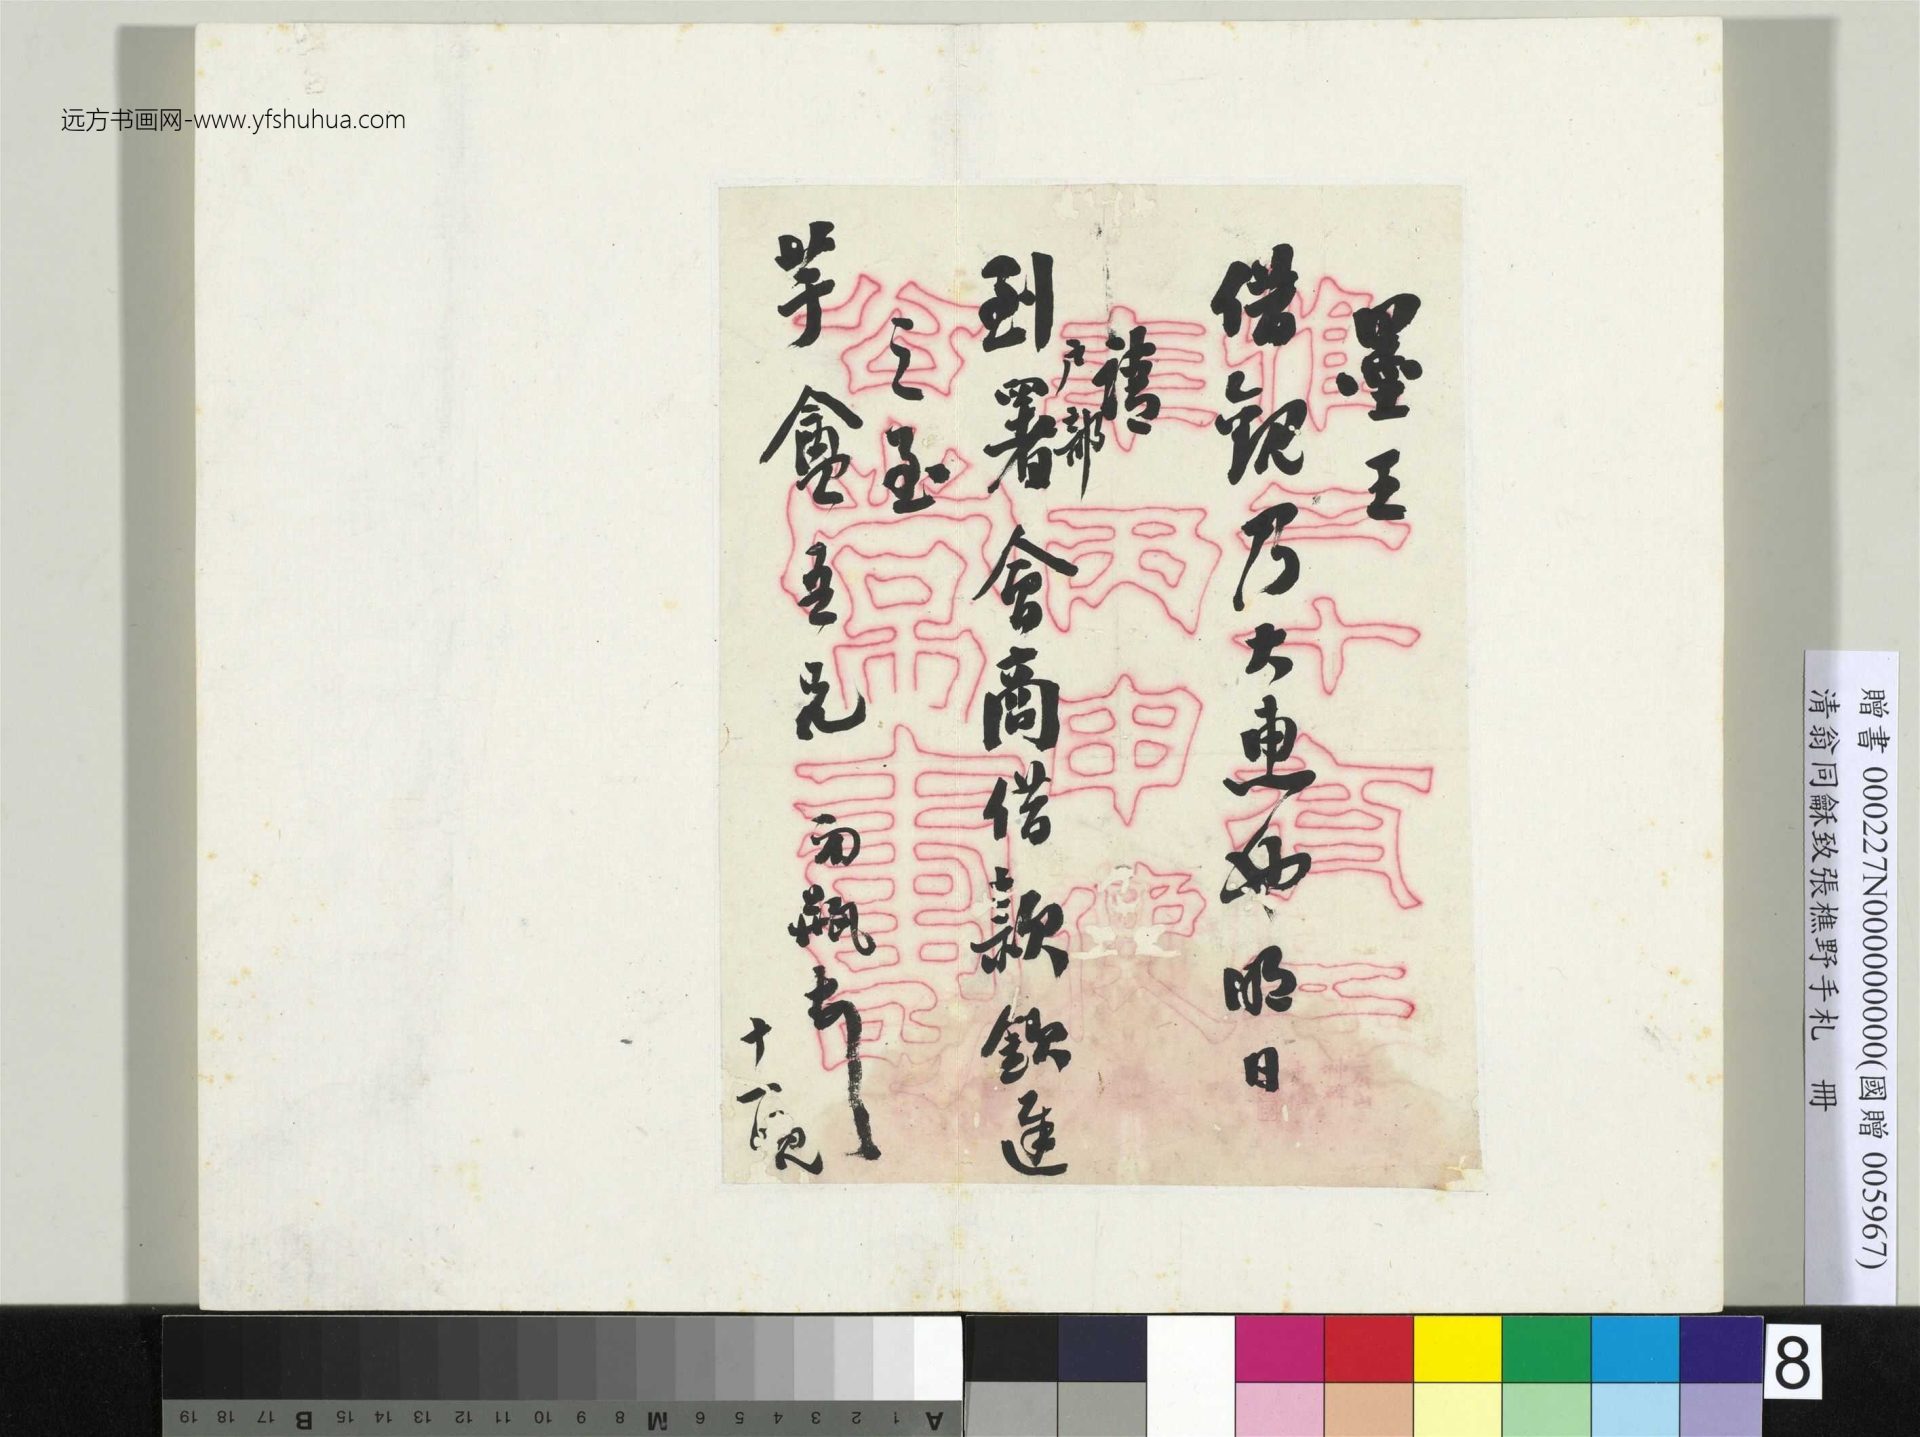 远方书画网-www.yfshuhua.com
墨王
借觀乃大惠也明日
請
到戶部署會商借款欵進
之至
芋盦吾兄 弟瓶頓
十八
惟二十有二
年丙申
公常書
贈書 000227N000000000(國贈 005967)
清翁同龢致張樵野手札 冊
8
A 1 2 3 4 5 6 M 8 9 10 11 12 13 14 15 B 17 18 19